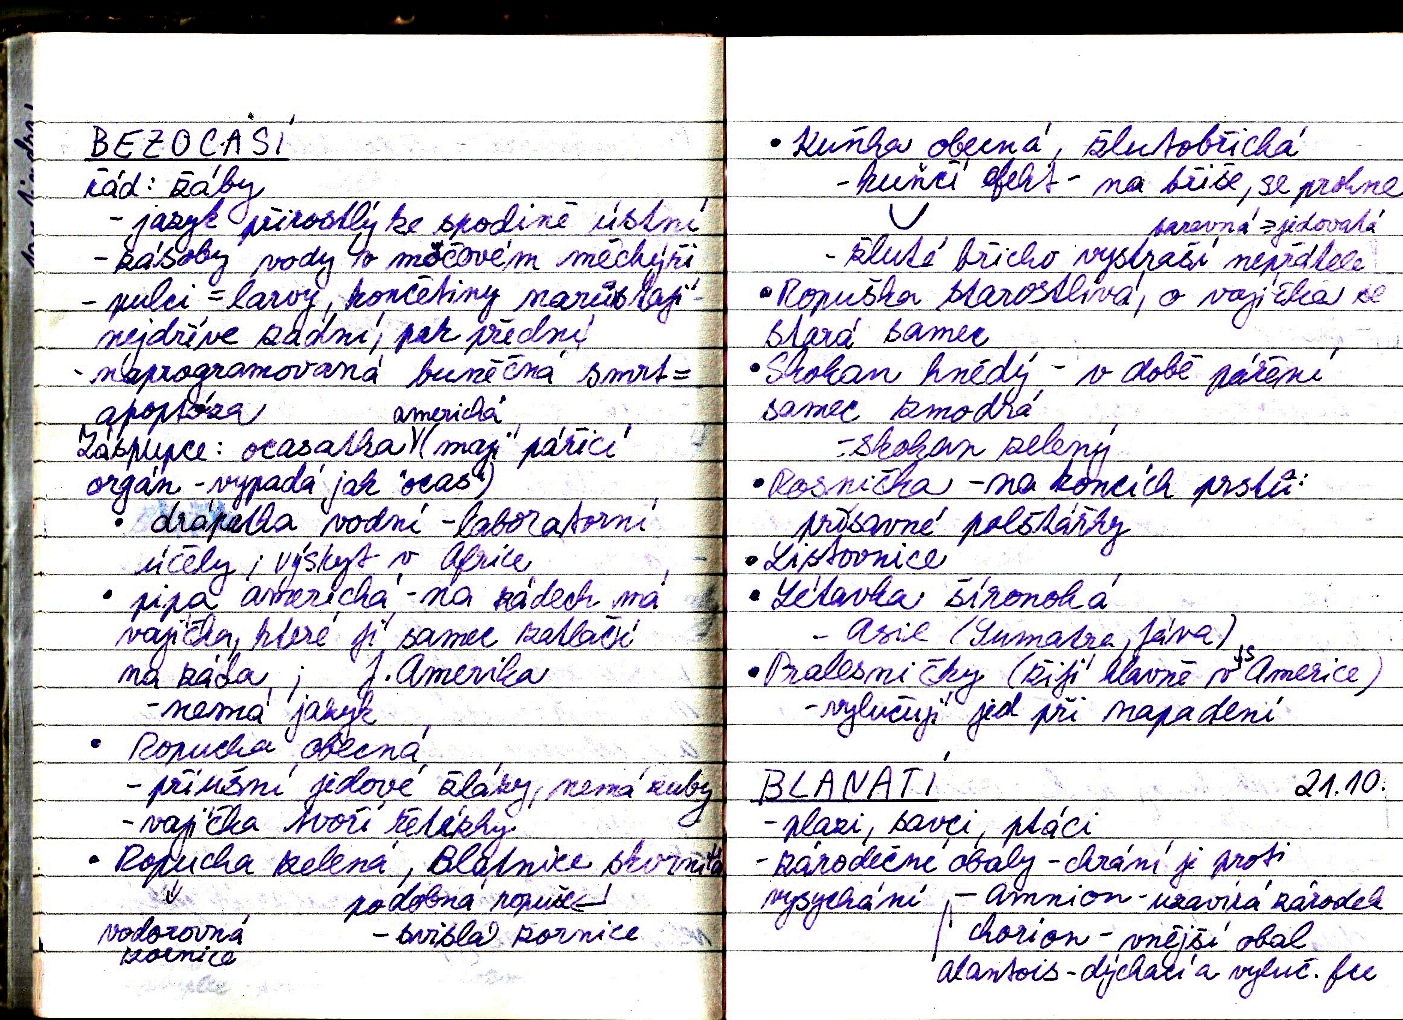 BEZOCASÍ
řád: žáby
- jazyk přirostlý ke spodině ústní
- zásoby vody v močovém měchýři
- pulci = larvy, končetiny narůstají
nejdříve zadní, pak přední
- naprogramovaná buněčná smrt =
apoptóza
americká
Zástupce: ocasatka (mají pářící
orgán - vypadá jak "ocas")
• drápatka vodní - laboratorní
účely; výskyt v Africe
• pipa americká - na zádech má
vajíčka, které jí samec zatlačí
na záda; J. Amerika
- nemá jazyk
• Ropucha obecná
- příušní jedové žlázy, nemá zuby
- vajíčka tvoří řetízky
• Ropucha zelená, Blatnice skvrnitá
podobná ropuše
vodorovná
zornice
- svislá zornice
• Kuňka obecná, žlutobřichá
- kunčí efekt - na břiše, se prohne
barevná = jedovatá
- žluté břicho vystraší nepřátele
• Ropuška starostlivá, o vajíčka se
stará samec
• Skokan hnědý - v době páření
samec zmodrá
- skokan zelený
• Rosnička - na koncích prstů:
přísavné polštářky
• Listovnice
• Létavka šironohá
- Asie (Sumatra, Jáva)
• Pralesničky (žijí hlavně v JS Americe)
- vylučují jed při napadení
BLANATÍ 21.10.
- plazi, savci, ptáci
- zárodečné obaly - chrání je proti
vysychání - Amnion - uzavírá zárodek
chorion - vnější obal
alantois - dýchací a vyluč. fce